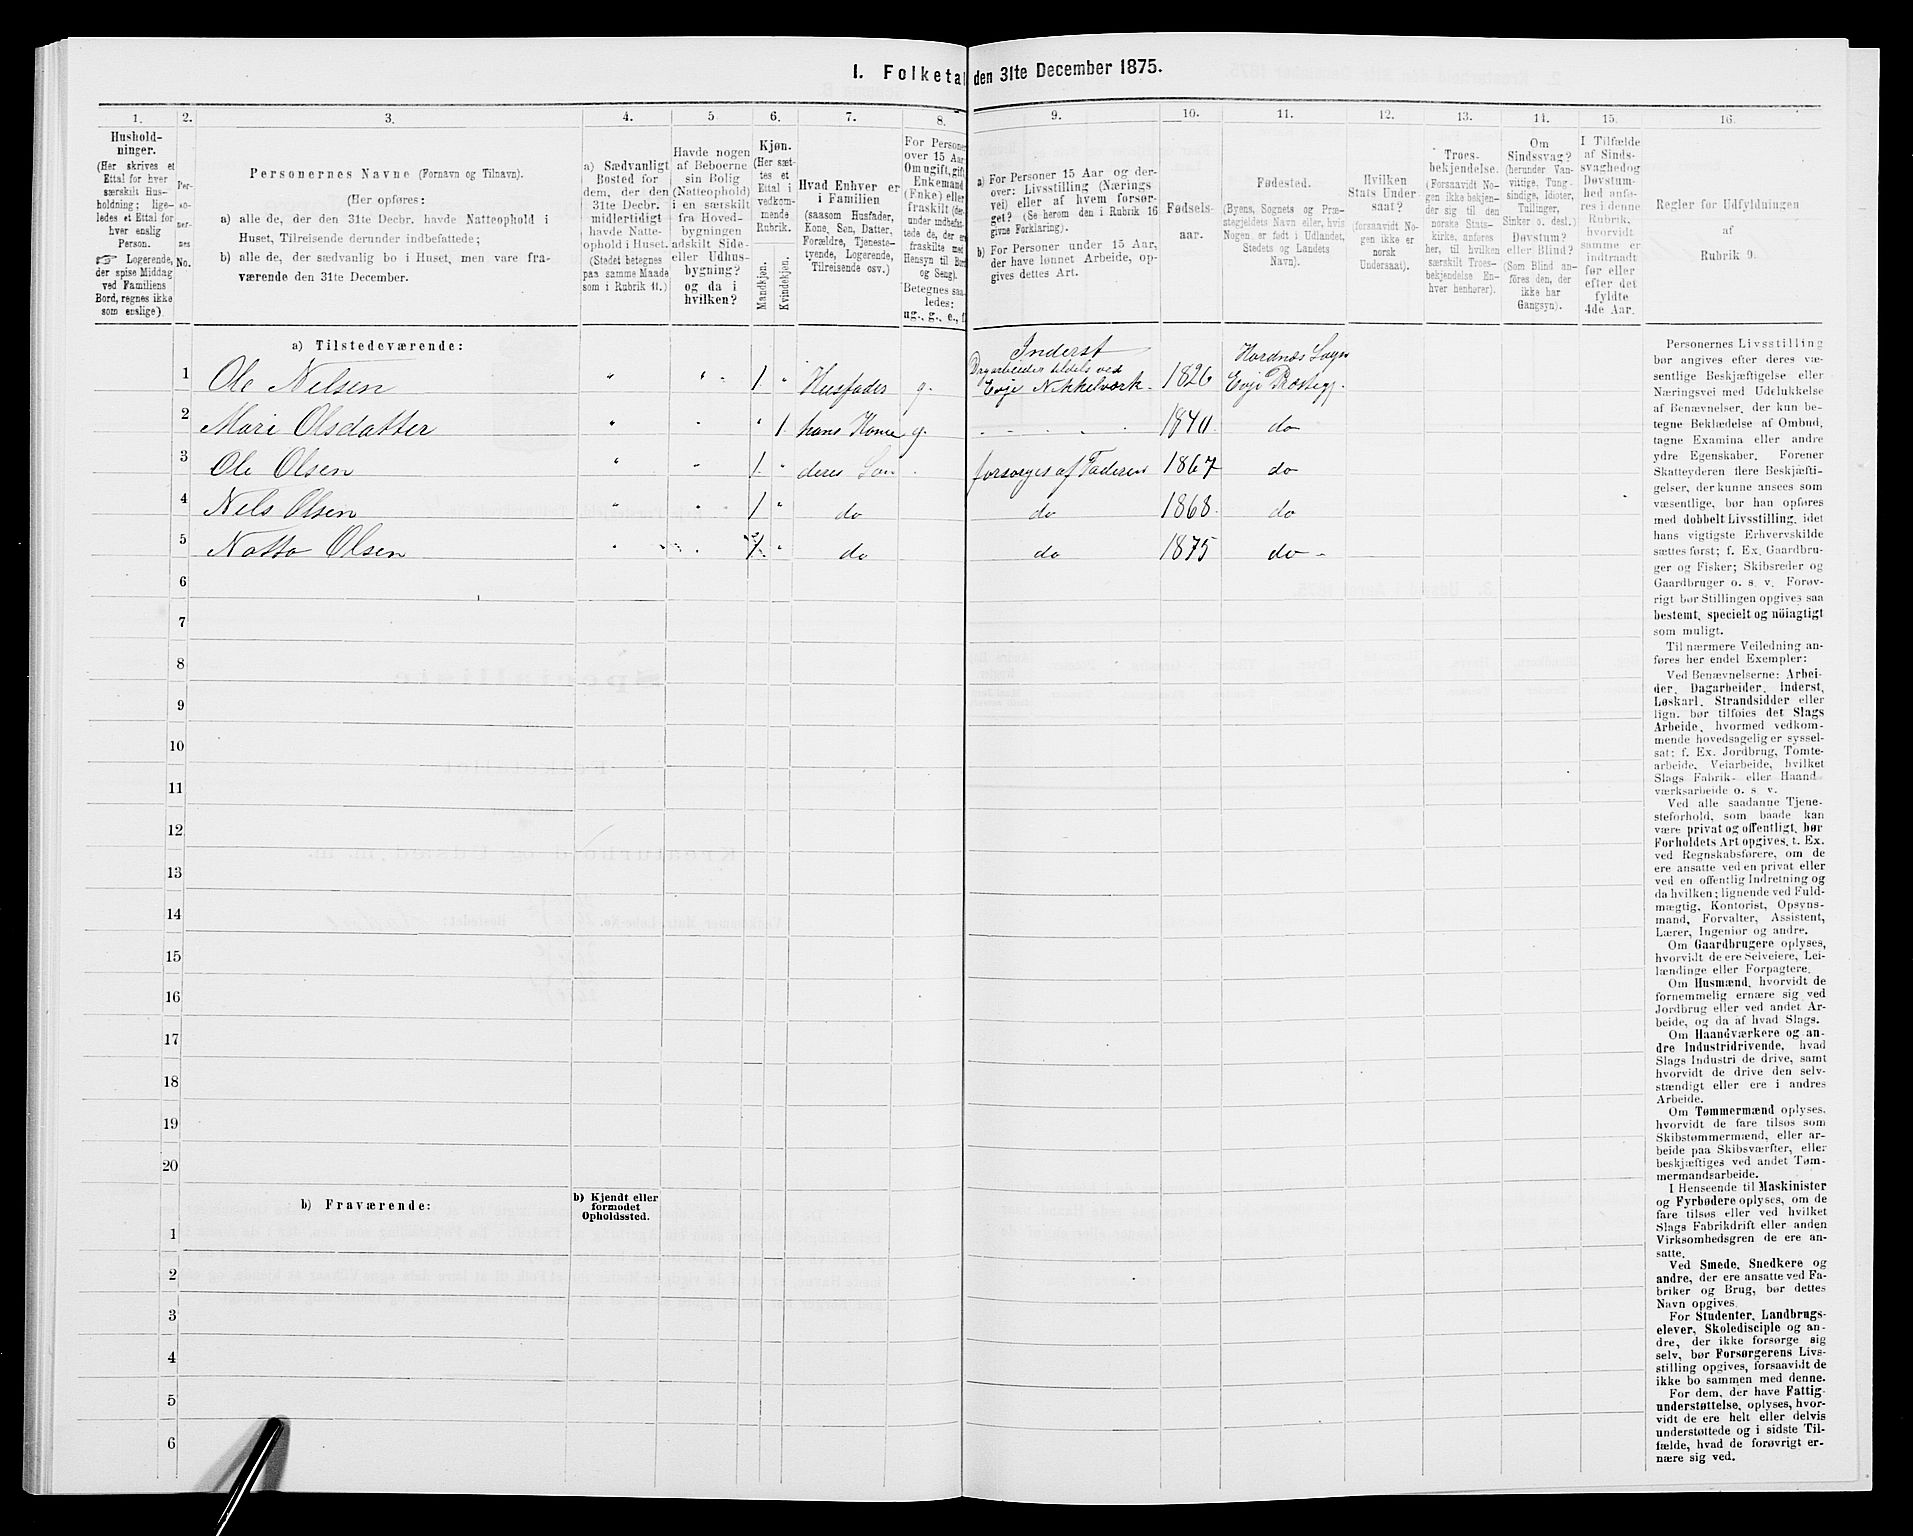 I. Folketal den 31te December 1875.
1.
Hushold-
ninger.
(Her skrives et
Ettal for hver
særskilt Hus-
holdning; lige-
ledes et Ettal for
hver enslig
Person.
☞ Logerende,
der spise Middag
ved Familiens
Bord, regnes ikke
som enslige).
2.
Per-
so-
ner-
nes
No.
3.
Personernes Navne (Fornavn og Tilnavn).
(Her opføres:
a) alle de, der den 31te Decbr. havde Natteophold i
Huset, Tilreisende derunder indbefattede;
b) alle de, der sædvanlig bo i Huset, men vare fra-
værende den 31te December.
4.
a) Sædvanligt
Bosted for
dem, der den
31te Decbr.
midlertidigt
havde Natte-
ophold i Huset.
(Stedet betegnes
paa samme Maade
som i Rubrik 11.)
5.
Havde nogen
af Beboerne
sin Bolig
(Natteophold)
i en særskilt
fra Hoved-
bygningen
adskilt Side-
eller Udhus-
bygning?
og da i
hvilken?
6.
Kjøn.
(Her sæt-
tes et
Ettal i
vedkom-
mende
Rubrik.
Mandkjøn.
Kvindekjøn.
7.
Hvad Enhver er
i Familien
(saasom Husfader,
Kone, Søn, Datter,
Forældre, Tjeneste-
tyende, Logerende,
Tilreisende osv.)
8.
For Personer
over 15 Aar
Om ugift, gift,
Enkemand
(Enke) eller
fraskilt (der-
under indbefat-
tede de, der ere
fraskilte med
Hensyn til Bord
og Seng).
Betegnes saa-
ledes:
ug., g., e., f.
9.
a) For Personer 15 Aar og der-
over: Livsstilling (Nærings-
vei) eller af hvem forsør-
get? (Se herom den i Rubrik 16
givne Forklaring).
b) For Personer under 15 Aar,
der have lønnet Arbeide, op-
gives dettes Art.
10.
Fødsels-
aar.
11.
Fødested.
(Byens, Sognets og Præ-
stegjeldets Navn eller, hvis
Nogen er født i Udlandet,
Stedets og Landets
Navn).
12.
Hvilken
Stats Under-
saat?
(forsaavidt No-
gen ikke er
norsk
Undersaat).
13.
Troes-
bekjendelse.
(Forsaavidt No-
gen ikke bekjen-
der sig til den
norske Stats-
kirke, anføres
her, til hvilken
særskilt Troes-
bekjendelse En-
hver henhører).
14.
Om
Sindssvag?
(herunder Van-
vittige, Tung-
sindige, Idioter,
Tullinger,
Sinker o. desl.)
Døvstum?
eller Blind?
(Som Blind an-
føres den, der
ikke har
Gangsyn).
15.
I Tilfælde
af Sinds-
svaghed og
Døvstum-
hed anfø-
res i denne
Rubrik,
hvorvidt
samme er
indtraadt
før eller
efter det
fyldte
4de Aar.
16.
Regler for Udfyldningen
af
Rubrik 9.
a) Tilstedeværende:
1 Ole Nilsen " " 1 " Husfader g. Inderst Dagarbeider tildels ved Evje Nikkelværk. 1826 Hordnæs Sogn Evje Præstegj.
2 Mari Olsdatter " " " 1 hans Kone g. 1840 do
3 Ole Olsen " " 1 " deres Søn forsørges af Faderen 1867 do
4 Nels Olsen " " 1 " do do 1868 do
5 Olsen " " 1 " do do 1875 do
6
7
8
9
10
11
12
13
14
15
16
17
18
19
20
b) Fraværende:
b) Kjendt eller
formodet
Opholdssted.
1
2
3
4
5
6
Personernes Livsstilling
bør angives efter deres væ-
sentlige Beskjæftigelse eller
Næringsvei med Udelukkelse
af Benævnelser, der kun be-
tegne Beklædelse af Ombud,
tagne Examina eller andre
ydre Egenskaber. Forener
Skatteyderen flere Beskjæfti-
gelser, der kunne ansees som
væsentlige, bør han opføres
med dobbelt Livsstilling, idet
hans vigtigste Erhvervskilde
sættes først; f. Ex. Gaardbru-
ger og Fisker; Skibsreder og
Gaardbruger o. s. v. Forøv-
rigt bør Stillingen opgives saa
bestemt, specielt og nöiagtigt
som muligt.
Til nærmere Veiledning an-
føres her endel Exempler:
Ved Benævnelserne: Arbei-
der, Dagarbeider, Inderst,
Løskarl, Strandsidder eller
lign. bør tilføies det Slags
Arbeide, hvormed vedkom-
mende hovedsagelig er syssel-
sat; f. Ex. Jordbrug, Tomte-
arbeide, Veiarbeide, hvilket
Slags Fabrik- eller Haand-
værksarbeide o. s. v.
Ved alle saadanne Tjene-
steforhold, som baade kan
være privat og offentligt, bør
Forholdets Art opgives, t. Ex.
ved Regnskabsførere, om de
ere ansatte ved en privat eller
ved en offentlig Indretning og
da hvilken; lignende ved Fuld-
mægtig, Kontorist, Opsyns-
mand, Forvalter, Assistent,
Lærer, Ingeniør og andre.
Om Gaardbrugere oplyses,
hvorvidt de ere Selveiere, Lei-
lændinge eller Forpagtere.
Om Husmænd, hvorvidt de
fornemmelig ernære sig ved
Jordbrug eller ved andet Ar-
beide, og da af hvad Slags.
Om Haandværkere og an-
dre Industridrivende, hvad
Slags Industri de drive, samt
hvorvidt de drive den selv-
stændigt eller ere i andres
Arbeide.
Om Tømmermænd oplyses,
hvorvidt de fare tilsøs som
Skibstømmermænd, eller ar-
beide paa Skibsværfter, eller
beskjæftiges ved andet Tøm-
mermandsarbeide.
I Henseende til Maskinister
og Fyrbødere oplyses, om de
fare tilsøs eller ved hvilket
Slags Fabrikdrift eller anden
Virksomhedsgren de ere an-
satte.
Ved Smede, Snedkere og
andre, der ere ansatte ved Fa-
briker og Brug, bør dettes
Navn opgives.
For Studenter, Landbrugs-
elever, Skoledisciple og an-
dre, der ikke forsørge sig
selv, bør Forsørgerens Livs-
stilling opgives, forsaavidt de
ikke bo sammen med denne.
For dem, der have Fattig-
understøttelse, oplyses, hvor-
vidt de ere helt eller delvis
understøttede og i sidste Til-
fælde, hvad de forøvrigt er-
nære sig ved.